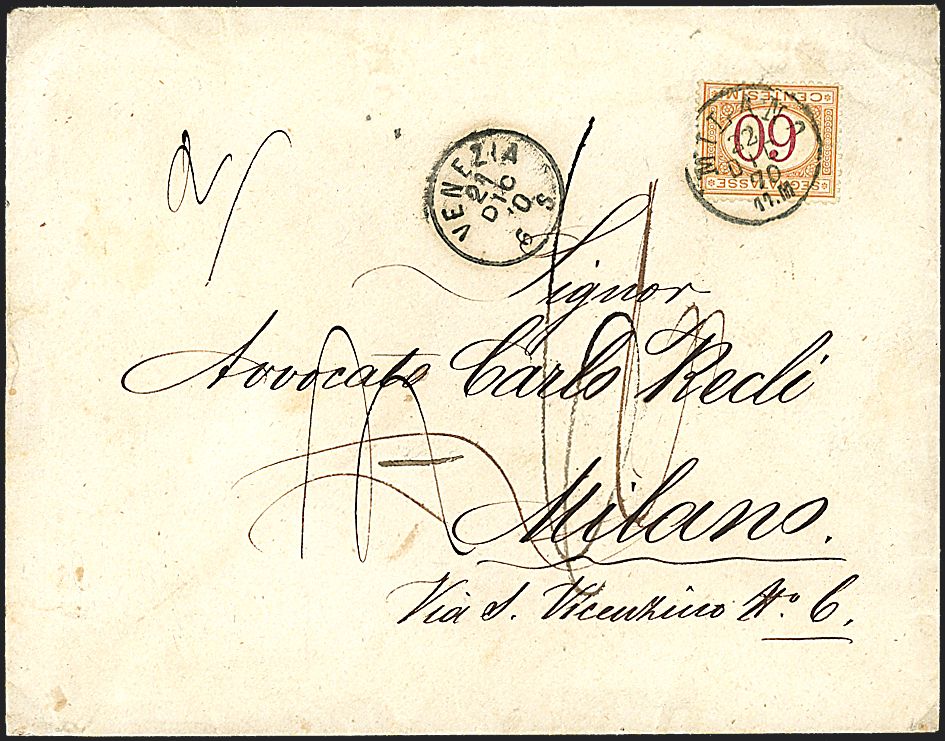 2
VENEZIA
21
DIC
70
6 S
CENTESIMI
60
SEGNATASSE
MILANO
22
DIC
70
11.M
Signor
Avvocato Carlo Redi
Milano.
Via S. Vicenzino No 6.